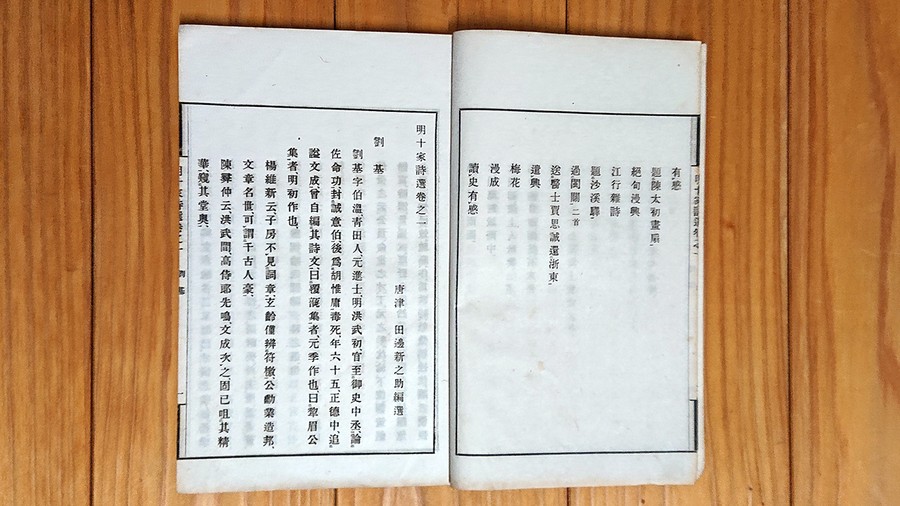 有感
題陳太初畫扇
絕句漫興
江行雜詩
題沙溪驛
過閩關二首
送醫士賈思誠還浙東
遣興
梅花
漫成
讀史有感
明十家詩選卷之二
唐津 田邊新之助編選
劉基
劉基字伯溫、青田人、元進士、明洪武初官至御史中丞、論
佐命功、封誠意伯、後為胡惟庸毒死、年六十五、正德中、追
謚文成、曾自編其詩文、曰覆瓿集者、元季作也、曰犂眉公
集者、明初作也、
楊維新云、子房不見詞章、玄齡僅辨符檄、公勳業造邦、
文章名世、可謂千古人豪、
陳臥仲云、洪武間、高侍郎先鳴、文成次之、固已咀其精
華、窺其堂奧、